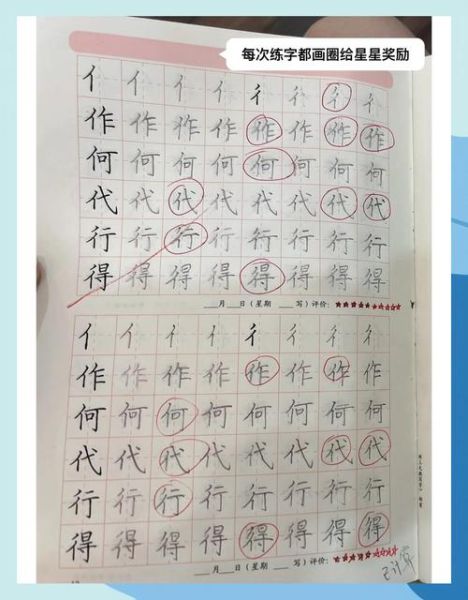 每次练字都画圈给星星奖励
亻 亻 亻 亻 彳 彳 彳 彳
作 作 作 作 作 作 作 作
何 何 何 何 何 何 何 何
代 代 代 代 代 代 代 代
行 行 行 行 行 行 行 行
得 得 得 得 得 得 得 得
___月___日(星期 ___写)评价:
亻 亻 亻 亻 彳 彳 彳 彳
作 作 作 作 作 作 作 作
何 何 何 何 何 何 何 何
代 代 代 代 代 代 代 代
行 行 行 行 行 行 行 行
得 得 得 得 得 得 得 得
___月___日(星期 ___写)评价: